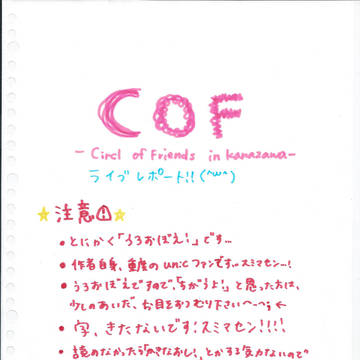 COF
- Circl of Friends in kanazawa -
ライブレポート!!(^w^)
☆注意①☆
• とにかく「うろおぼえ」です…
• 作者自身、重度のunicファンです…スミマセン…!
• うろおぼえですので、「ちがうよ!」と思った方は、
少しのあいだ、お目をおつむり下さい～～;←
• 字、きたないです!スミマセン!!!!